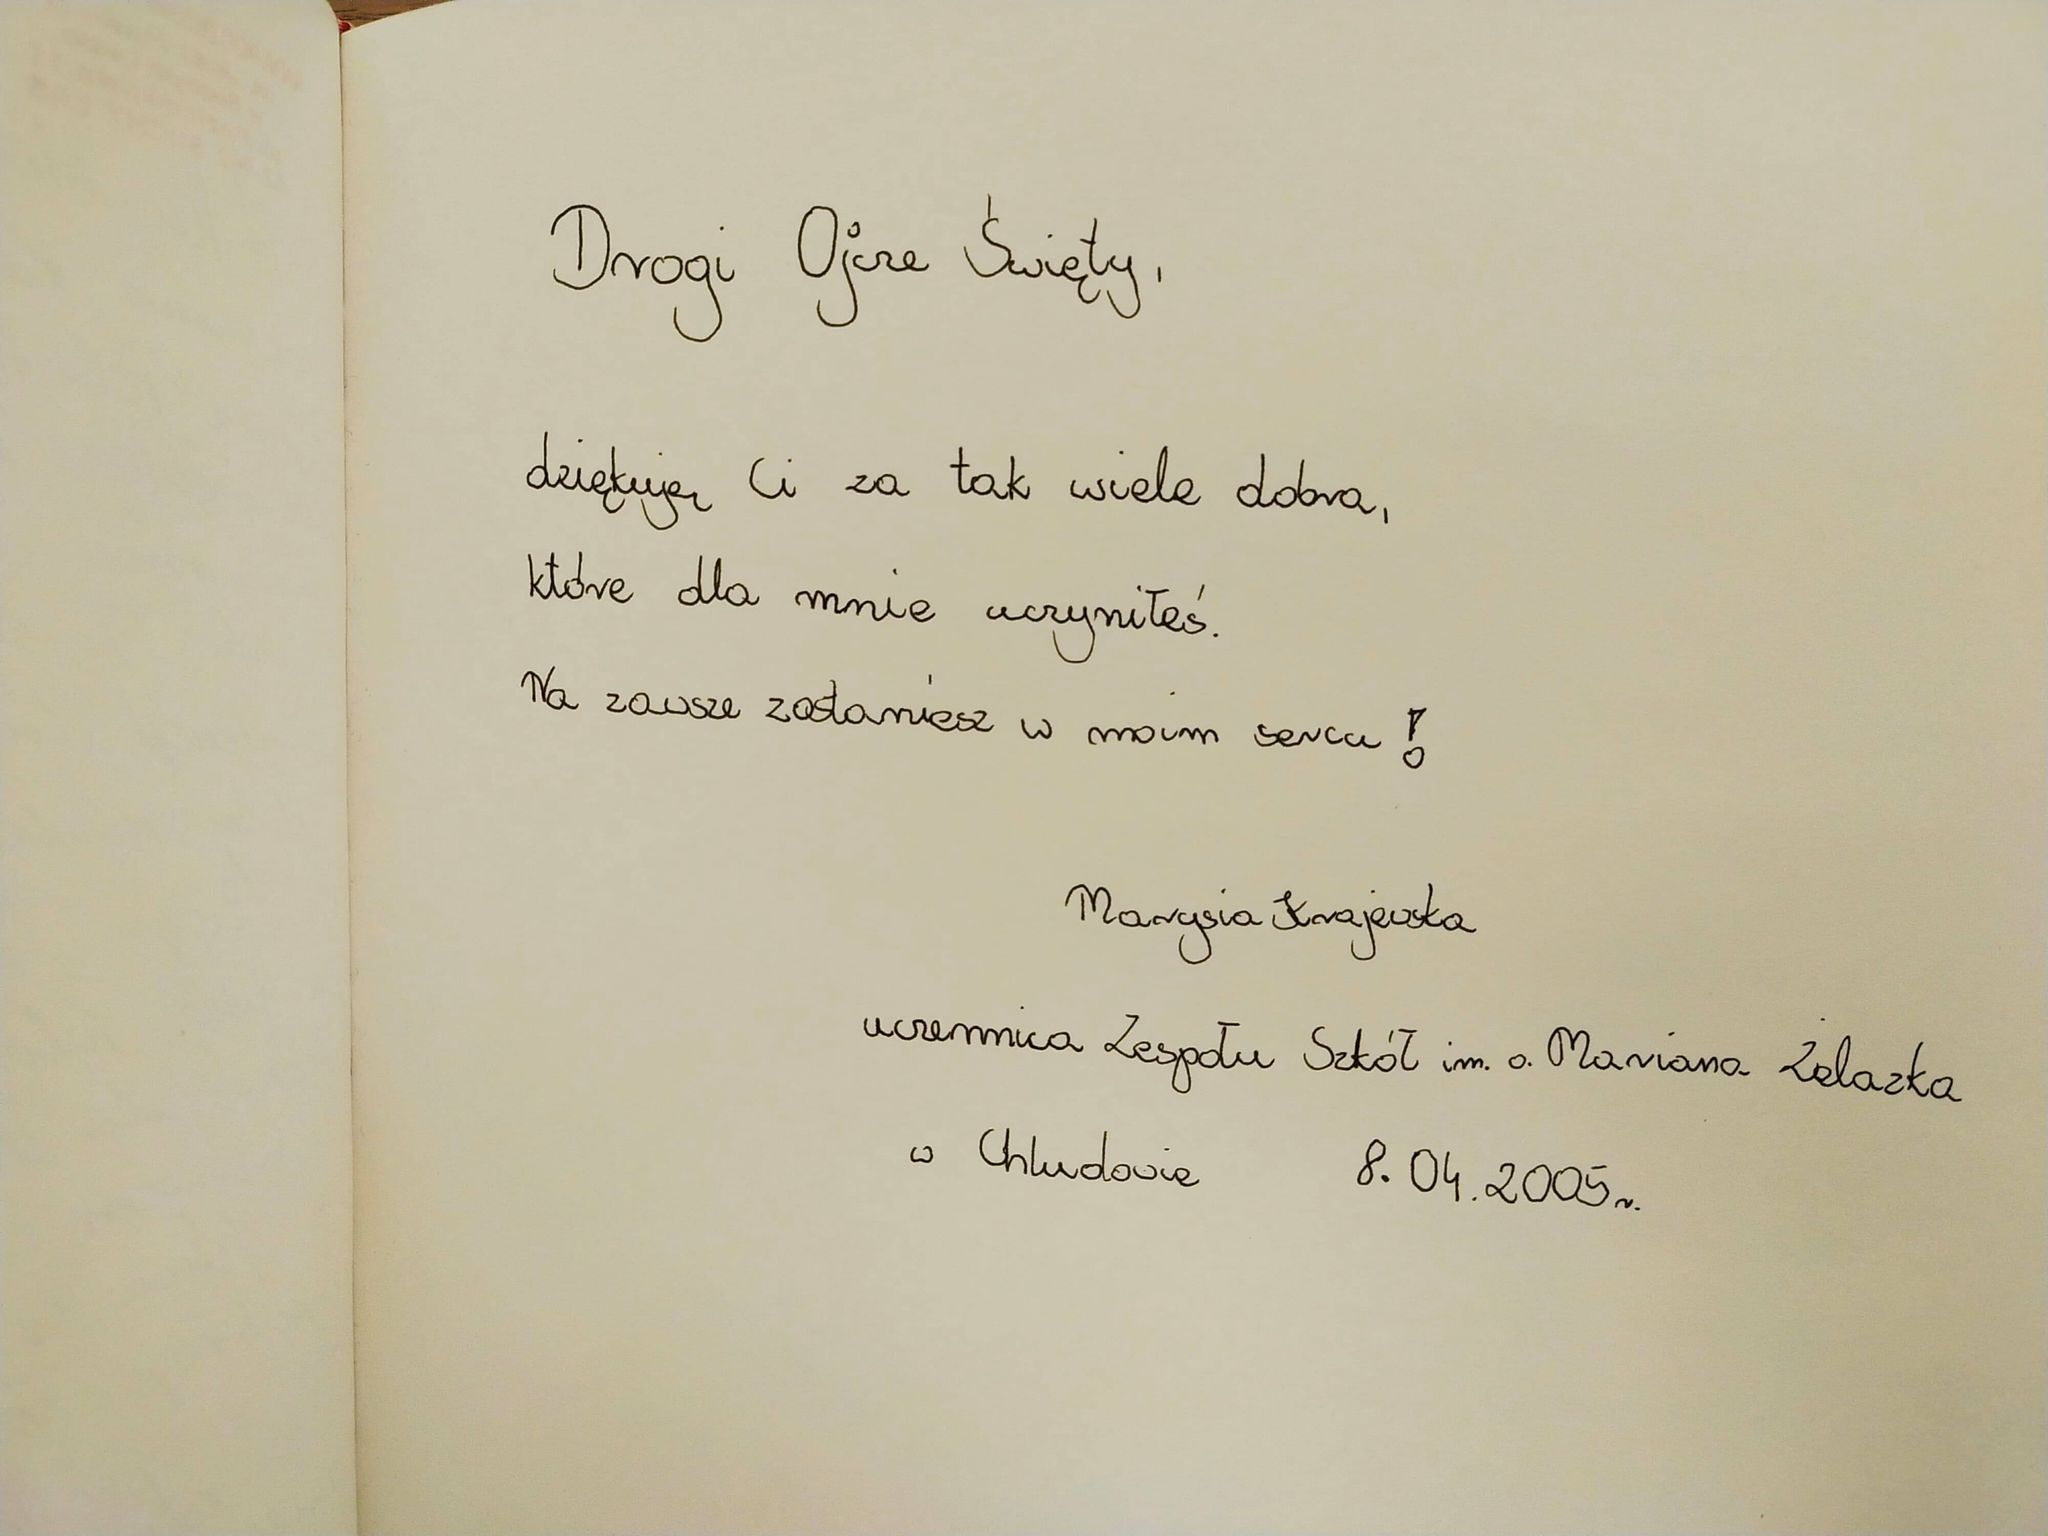 Drogi Ojcze Święty,
dziękuję Ci za tak wiele dobra,
które dla mnie uczyniłeś.
Na zawsze zostaniesz w moim sercu!
Marysia Krajewska
uczennica Zespołu Szkół im. o. Mariana Żelazka
w Chludowie 8.04.2005r.